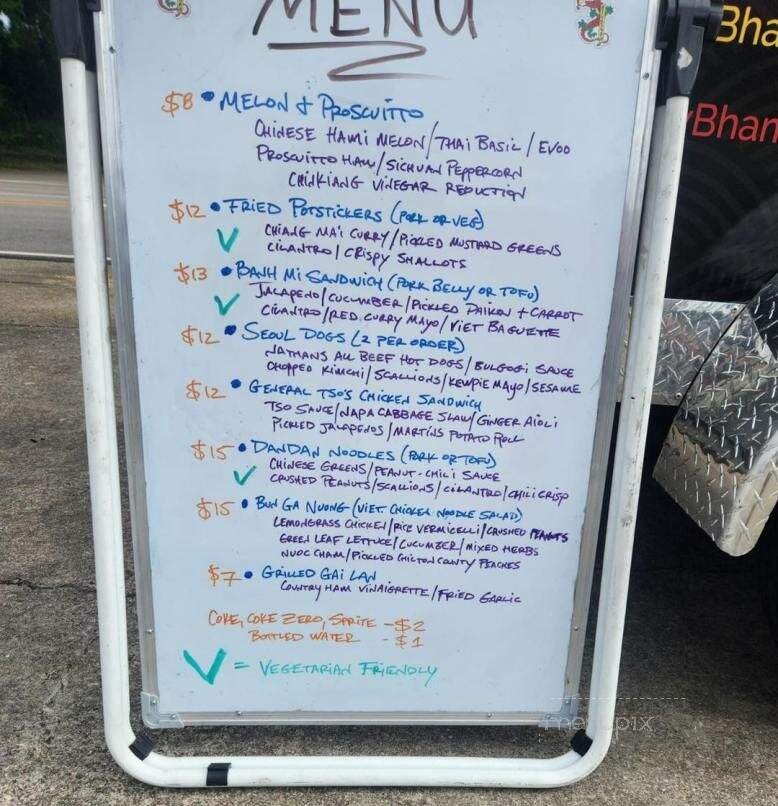 MENU
Bha
yBham
$8 • MELON & PROSCUITTO
CHINESE HAMI MELON/THAI BASIL/EVOO
PROSCUITTO HAM/SICHUAN PEPPERCORN
CHINKIANG VINEGAR REDUCTION
$12 • FRIED POTSTICKERS (PORK OR VEG)
✓ CHIANG MAI CURRY/PICKLED MUSTARD GREENS
CILANTRO/CRISPY SHALLOTS
$13 • BANH MI SANDWICH (PORK BELLY OR TOFU)
✓ JALAPENO/CUCUMBER/PICKLED DAIKON + CARROT
CILANTRO/RED CURRY MAYO/VIET BAGUETTE
$12 • SEOUL DOGS (2 PER ORDER)
NATHANS ALL BEEF HOT DOGS/BULGOGI SAUCE
CHOPPED KIMCHI/SCALLIONS/KEWPIE MAYO/SESAME
$12 • GENERAL TSO'S CHICKEN SANDWICH
TSO SAUCE/NAPA CABBAGE SLAW/GINGER AIOLI
PICKLED JALAPENOS/MARTINS POTATO ROLL
$15 • DANDAN NOODLES (PORK OR TOFU)
✓ CHINESE GREENS/PEANUT-CHILI SAUCE
CRUSHED PEANUTS/SCALLIONS/CILANTRO/CHILI CRISP
$15 • BUN GA NUONG (VIET. CHICKEN NOODLE SALAD)
LEMONGRASS CHICKEN/RICE VERMICELLI/CRUSHED PEANUTS
GREEN LEAF LETTUCE/CUCUMBER/MIXED HERBS
NUOC CHAM/PICKLED CHILTON COUNTY PEACHES
$7 • GRILLED GAI LAN
COUNTRY HAM VINAIGRETTE/FRIED GARLIC
COKE, COKE ZERO, SPRITE - $2
BOTTLED WATER - $1
✓ = VEGETARIAN FRIENDLY
menupix